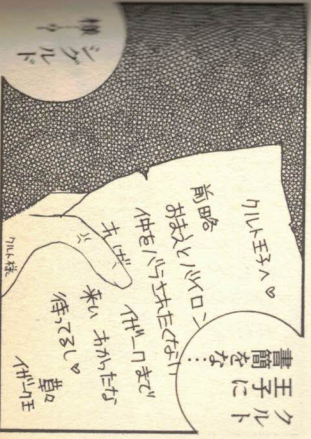 クルト
王子に
書簡をな…
クルト王子へ♡
前略
おまえとバイロン
仲をバラされたくなけ
れば、イザークまで
来い わかったな
待ってるし♡
草々
イザーク王
クルト様
シグルド